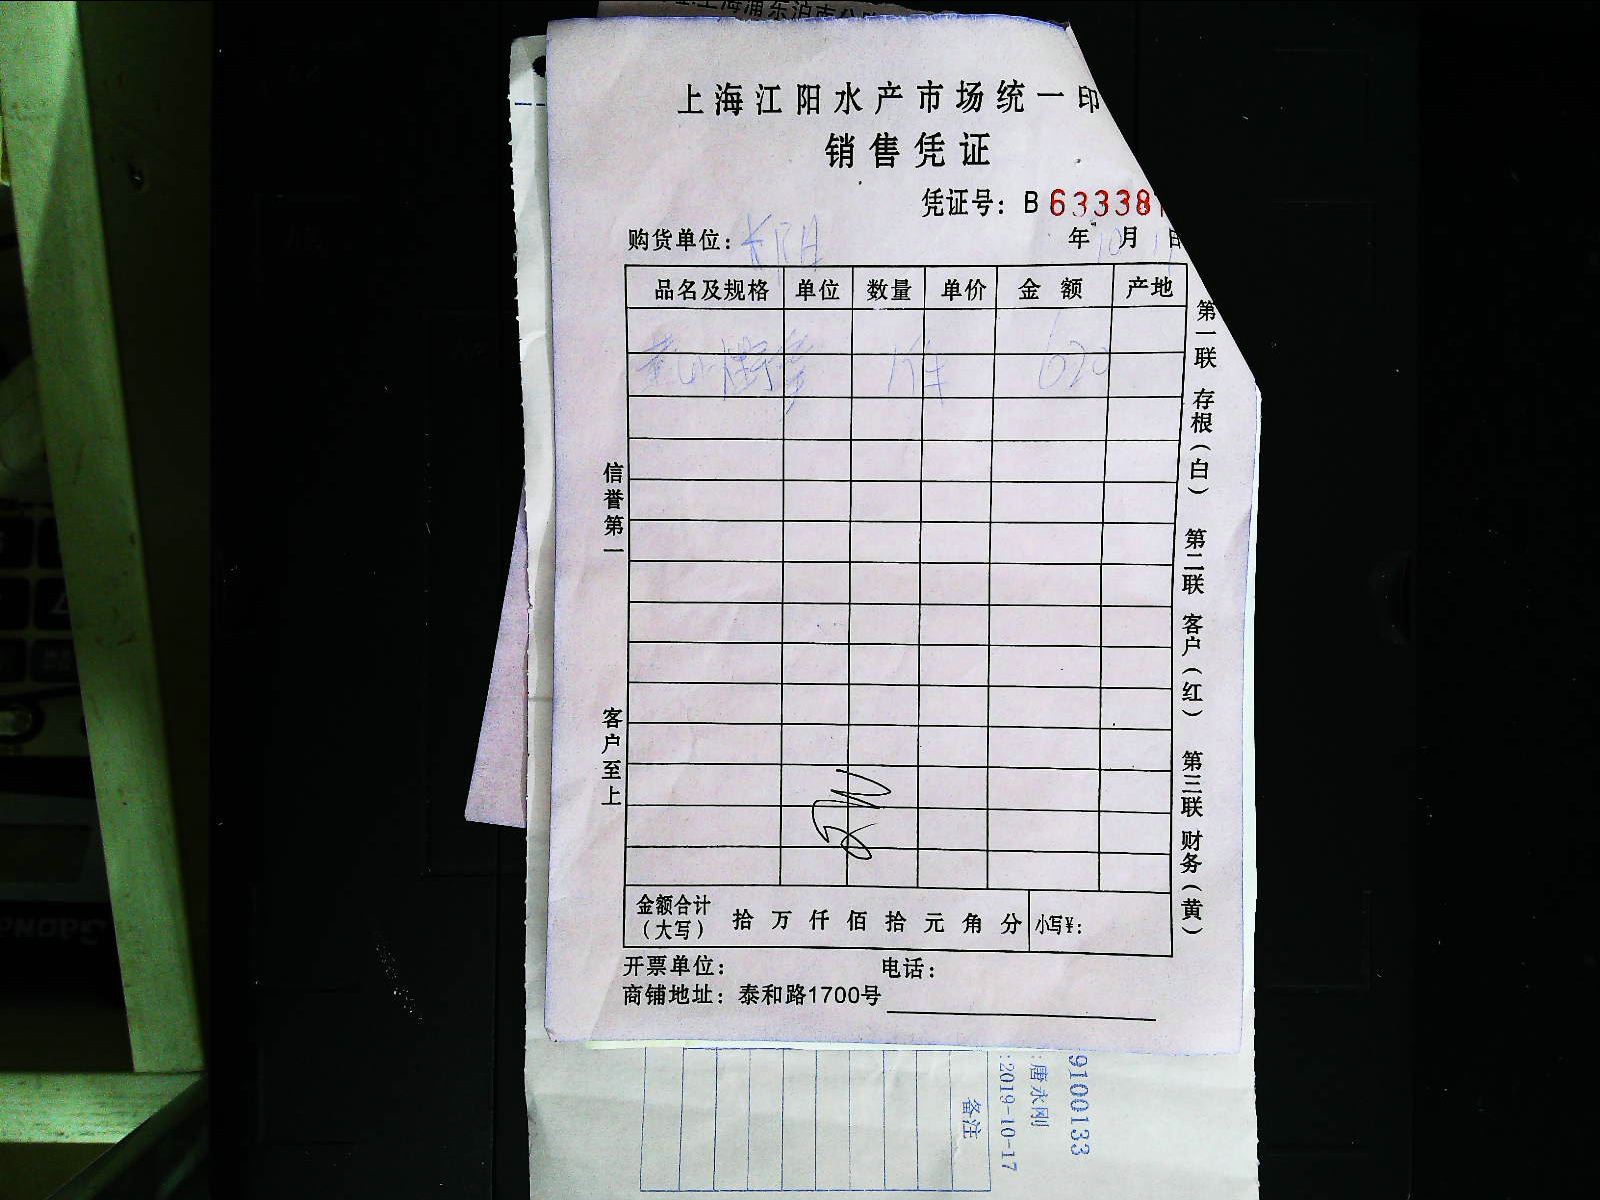 上海浦东沪南公路
上海江阳水产市场统一印
销售凭证
凭证号：B 633381
购货单位： 年 10 月 日
品名及规格 单位 数量 单价 金额 产地
1件 620
信誉第一
客户至上
第一联 存根（白） 第二联 客户（红） 第三联 财务（黄）
金额合计（大写） 拾 万 仟 佰 拾 元 角 分 小写¥：
开票单位： 电话：
商铺地址：泰和路1700号
9100133
:唐永刚
:2019-10-17
备注